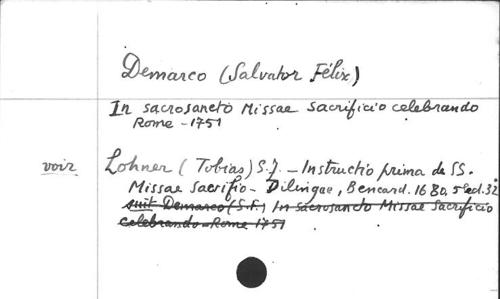 Demarco (Salvator Félix)
In sacrosancto Missae Sacrificio celebrando
Rome - 1751
voir Lohner (Tobias) S.J. - Instructio prima de SS.
Missae Sacrifio - Dilingae, Bencard. 1680, 5e ed. 32°
suit Demarco (S.F.) In sacrosancto Missae Sacrificio
celebrando - Rome 1751